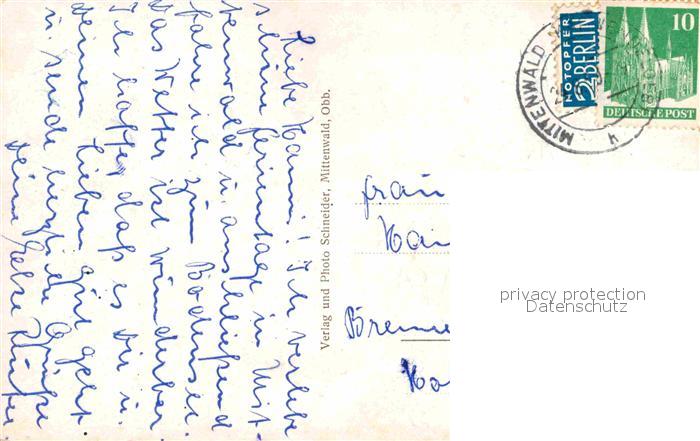 Liebe Hanni! Ich verlebe
schöne Ferientage in Mit-
tenwald u. anschließend
fahre ich zum Bodensee.
Das Wetter ist wunderbar
Ich hoffe, daß es Dir u.
deinen Lieben gut geht.
u. sende herzliche Grüße
Deine
Verlag und Photo Schneider, Mittenwald, Obb.
MITTENWALD
NOTOPFER
2 BERLIN
10
DEUTSCHE POST
Frau
Bremen
privacy protection
Datenschutz